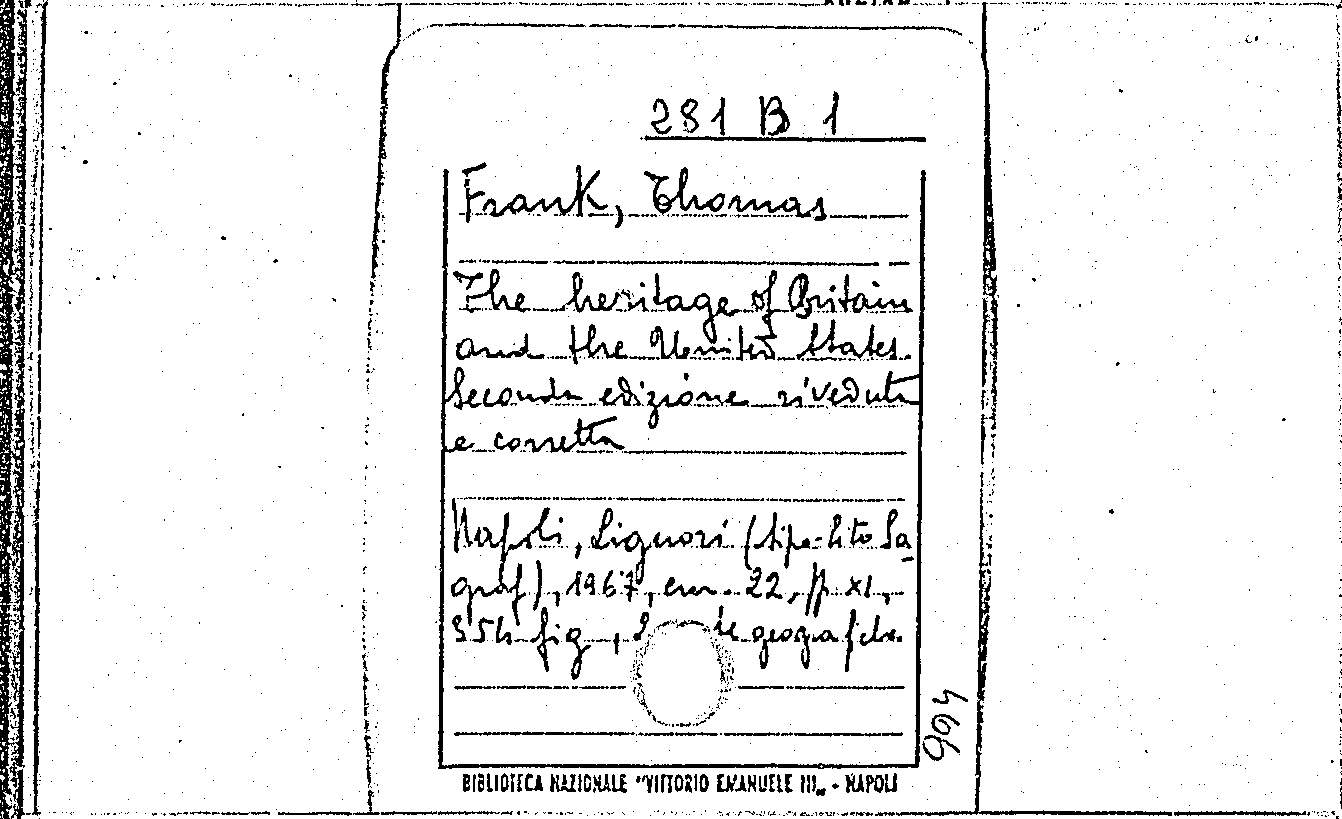 281 B 1
Frank, Thomas
The heritage of Britain
and the United States.
Seconda edizione riveduta
e corretta
Napoli, Liguori (tipo-lito Sa
graf), 1967, cm. 22, pp XI,
354 fig, geografiche.
994
BIBLIOTECA NAZIONALE "VITTORIO EMANUELE III„ - NAPOLI